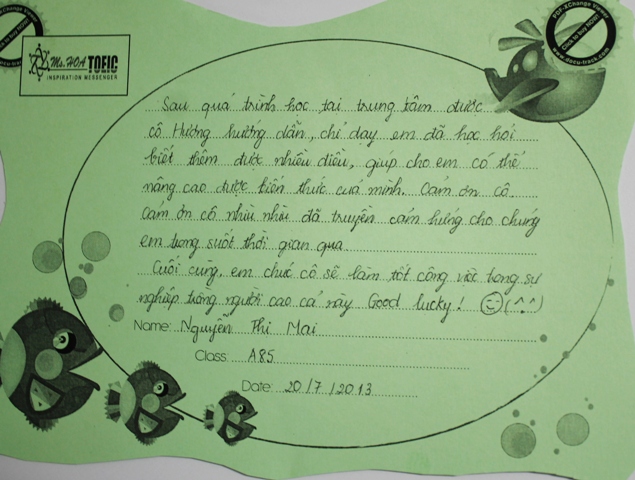 Ms. HOA TOEIC
INSPIRATION MESSENGER
PDF-XChange Viewer
Click to buy NOW!
www.docu-track.com
Sau quá trình học tại trung tâm được
cô Hương hướng dẫn, chỉ dạy em đã học hỏi
biết thêm được nhiều điều, giúp cho em có thể
nâng cao được kiến thức của mình. Cảm ơn cô.
Cảm ơn cô nhìu nhìu đã truyền cảm hứng cho chúng
em trong suốt thời gian qua
Cuối cùng, em chúc cô sẽ làm tốt công việc trong sự
nghiệp trồng người cao cả này Good lucky! (^.^)
Name: Nguyễn Thị Mai
Class: A85
Date: 20/7/2013